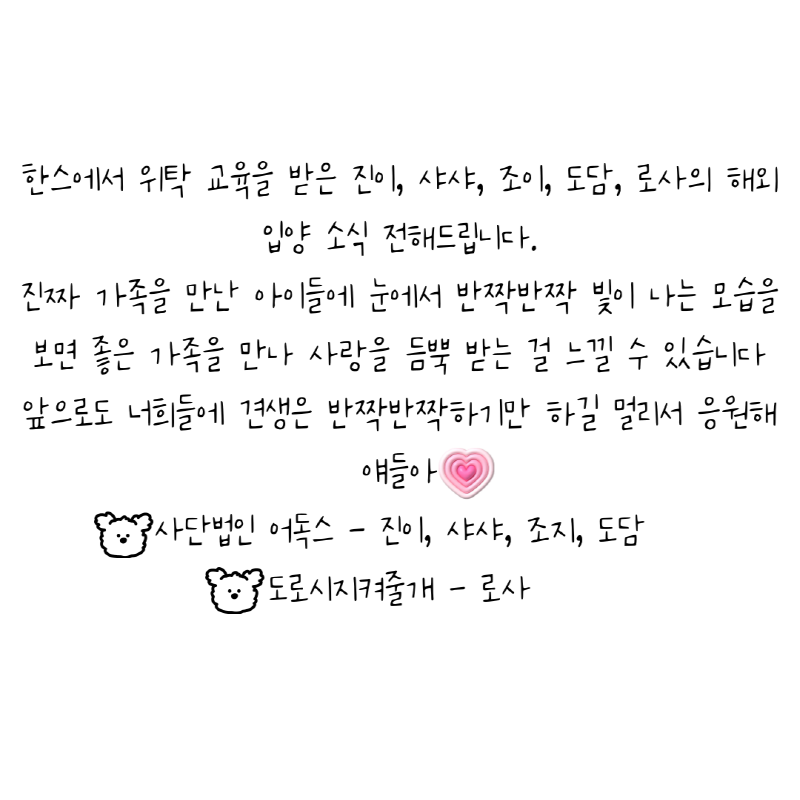 한스에서 위탁 교육을 받은 진이, 샤샤, 조이, 도담, 로사의 해외
입양 소식 전해드립니다.
진짜 가족을 만난 아이들에 눈에서 반짝반짝 빛이 나는 모습을
보면 좋은 가족을 만나 사랑을 듬뿍 받는 걸 느낄 수 있습니다
앞으로도 너희들에 견생은 반짝반짝하기만 하길 멀리서 응원해
얘들아
사단법인 어독스 - 진이, 샤샤, 조지, 도담
도로시지켜줄개 - 로사